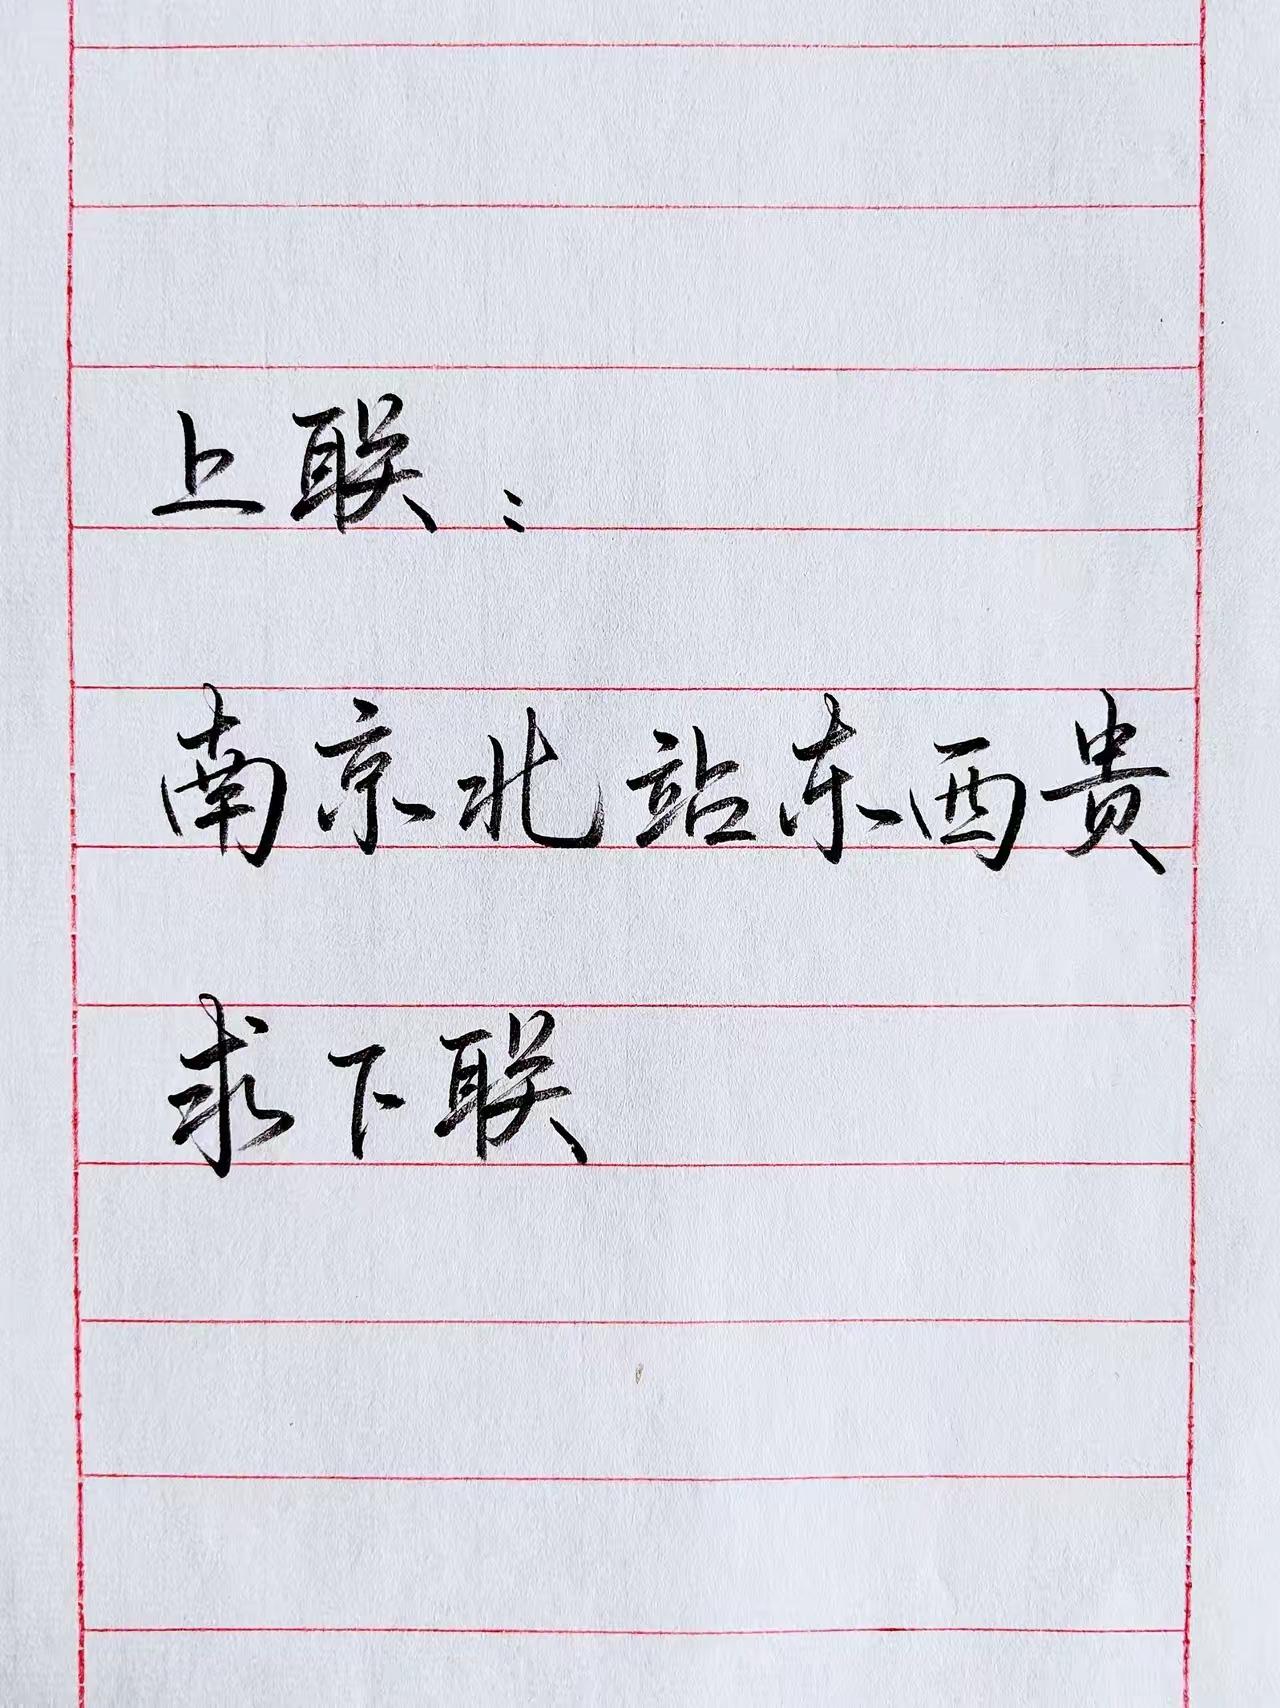 上联：
南京北站东西贵
求下联